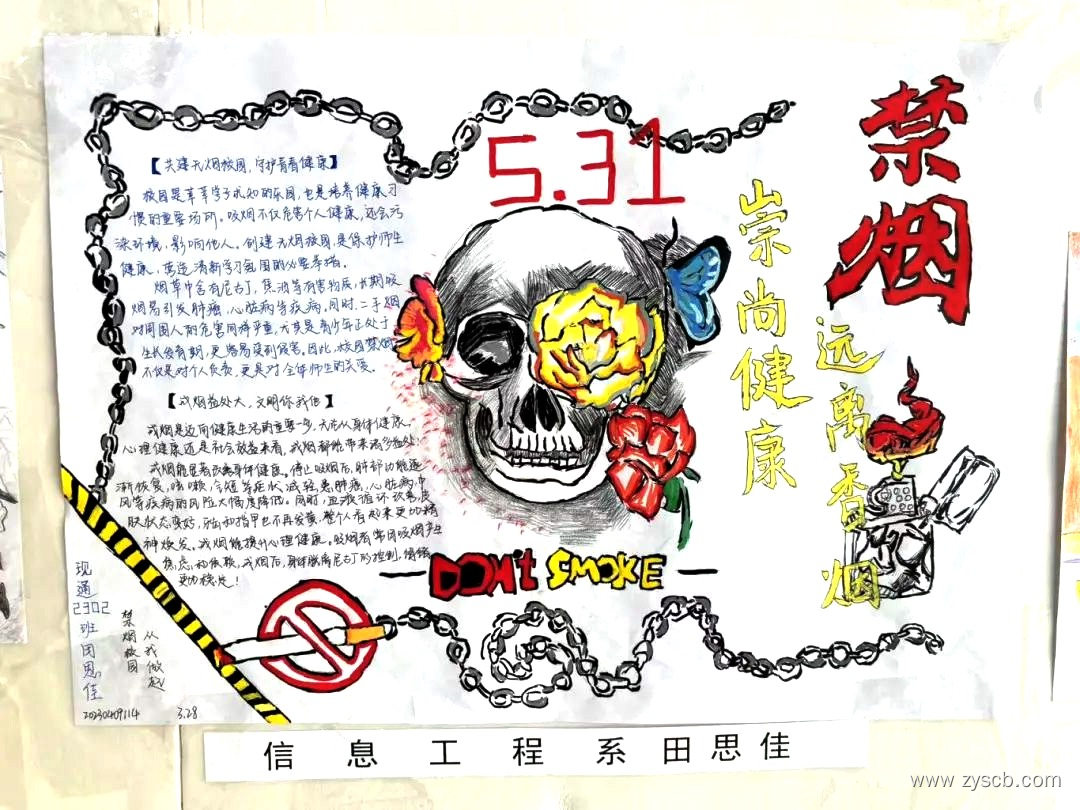 禁烟
5.31
崇尚健康
远离香烟
【共建无烟校园，守护青春健康】
校园是莘莘学子求知的乐园，也是培养健康习
惯的重要场所。吸烟不仅危害个人健康，还会污
染环境，影响他人。创建无烟校园，是保护师生
健康，营造清新学习氛围的必要举措。
烟草中含有尼古丁，焦油等有害物质，长期吸
烟易引发肺癌，心脏病等疾病，同时，二手烟
对周围人的危害同样严重，尤其是青少年正处于
生长发育期，更容易受到侵害。因此，校园禁烟
不仅是对个人负责，更是对全体师生的关爱。
【戒烟益处大，文明你我他】
戒烟是迈向健康生活的重要一步，无论从身体健康，
心理健康还是社会效益来看，戒烟都能带来诸多益处！
戒烟能显著改善身体健康。停止吸烟后，肺部功能逐
渐恢复，咳嗽，气短等症状减轻，患肺癌，心脏病，中
风等疾病的风险大幅度降低。同时，血液循环改善，皮
肤状态变好，牙齿和指甲也不再发黄，整个人看起来更加精
神焕发。戒烟能提升心理健康。吸烟者常因吸烟产生
焦虑，和依赖，戒烟后，身体脱离尼古丁的控制，情绪
更加稳定！
DON't SMOKE
现通2302班田思佳
禁烟校园
从我做起
20230409114 3.28
信息工程系田思佳
www.zyscb.com